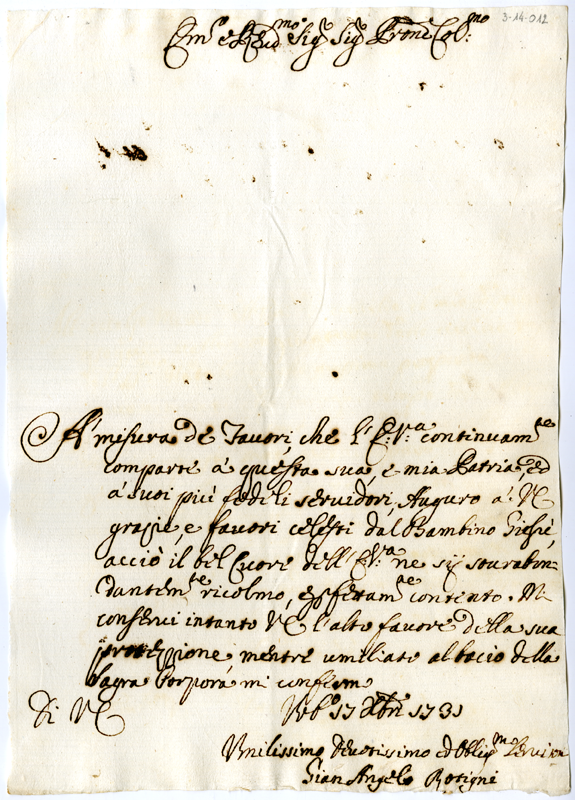 3-14-012
Em.o e Rev.mo Sig.r Sig.r Prone Col.mo
A' misura de' favori, che l'E.V.a continuam.te
comparte à questa sua, e mia Patria, ed
à suoi più fedeli servidori, Auguro à VE
grazie, e favori celesti dal Bambino Giesù,
acciò il bel Cuore dell'E.V.a ne sij sovrabon:
dantem.te ricolmo, e
contento. Mi
conservi intanto VE l'alto favore della sua
protezzione, mentre umiliato al bacio della
Sagra Porpora mi conferm
Di VE
17 Xbre 1731
Umilissimo Devotissimo ed Oblig.mo
Gian Angelo